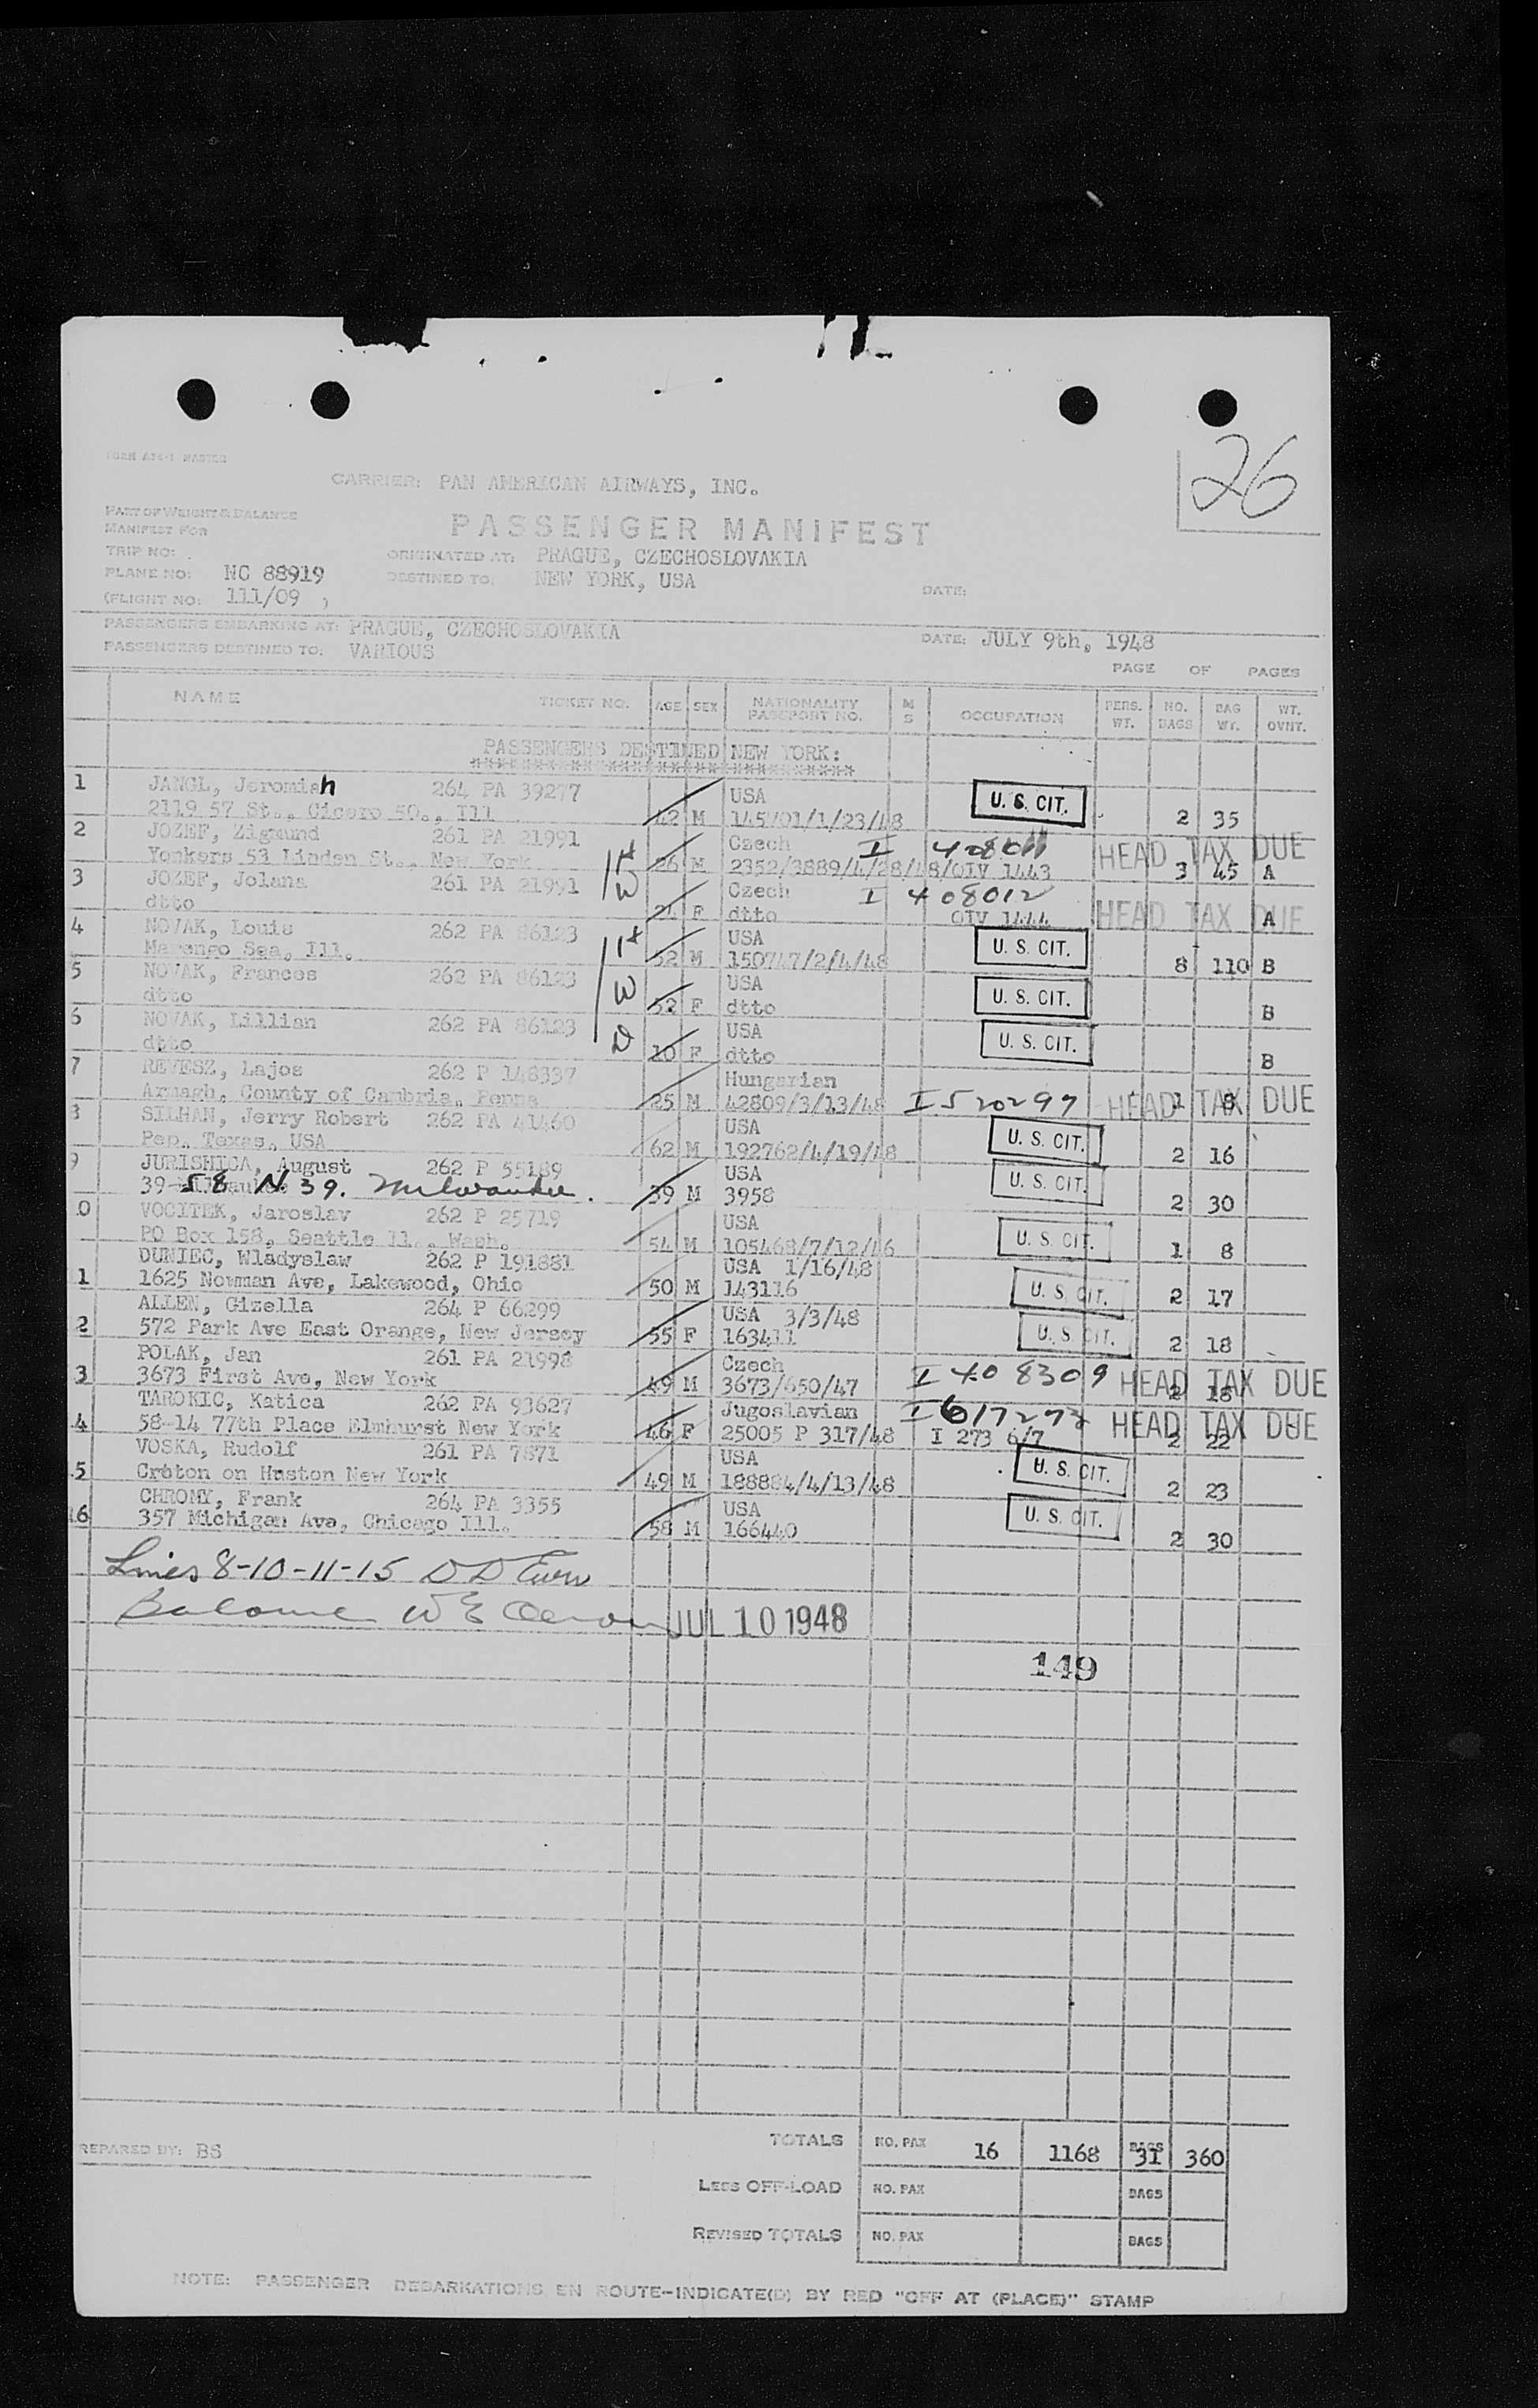 FORM ATC-1 MASTER
26
CARRIER: PAN AMERICAN AIRWAYS, INC.
PART OF WEIGHT & BALANCE
MANIFEST FOR
PASSENGER MANIFEST
TRIP NO:
ORIGINATED AT: PRAGUE, CZECHOSLOVAKIA
PLANE NO: NC 88919
DESTINED TO: NEW YORK, USA
DATE:
(FLIGHT NO: 111/09 )
PASSENGERS EMBARKING AT: PRAGUE, CZECHOSLOVAKIA
DATE: JULY 9th, 1948
PASSENGERS DESTINED TO: VARIOUS
PAGE OF PAGES
NAME TICKET NO. AGE SEX NATIONALITY PASSPORT NO. M S OCCUPATION PERS. WT. NO. BAGS BAG WT. WT. OVNT.
PASSENGERS DESTINED NEW YORK:
1 JANGL, Jeromiah 264 PA 39277 USA U. S. CIT.
2119 57 St., Cicero 50., Ill 42 M 145701/1/23/48 2 35
2 JOZEF, Zigmund 261 PA 21991 Czech I 408011 HEAD TAX DUE
Yonkers 53 Linden St., New York 26 M 2352/3889/4/28/48/QIV 1443 3 45 A
3 JOZEF, Jolana 261 PA 21991 W Czech I 408012
dtto F dtto QIV 1444 HEAD TAX DUE A
4 NOVAK, Louis 262 PA 86123 USA U. S. CIT.
Marengo Sea, Ill. 52 M 150747/2/4/48 8 110 B
5 NOVAK, Frances 262 PA 86123 W USA U. S. CIT.
dtto 52 F dtto B
6 NOVAK, Lillian 262 PA 86123 D USA U. S. CIT.
dtto 10 F dtto B
7 REVESZ, Lajos 262 P 148337 Hungarian
Armagh, County of Cambria, Penna 25 M 42809/3/13/48 I 520297 HEAD TAX DUE 1 8
8 SILHAN, Jerry Robert 262 PA 41460 USA U. S. CIT.
Pep, Texas, USA 62 M 192762/4/19/48 2 16
9 JURISHICA, August 262 P 55189 USA U. S. CIT.
39- 58 N 39. Milwaukee. 39 M 3958 2 30
10 VOCITEK, Jaroslav 262 P 25719 USA U. S. CIT.
PO Box 158, Seattle 11., Wash. 54 M 105468/7/12/46 1 8
DUNIEC, Wladyslaw 262 P 191881 USA 1/16/48 U. S. CIT.
1 1625 Newman Ave, Lakewood, Ohio 50 M 143116 2 17
ALLEN, Gizella 264 P 66299 USA 3/3/48 U. S. CIT.
2 572 Park Ave East Orange, New Jersey 55 F 163411 2 18
POLAK, Jan 261 PA 21998 Czech I 408309 HEAD TAX DUE
3 3673 First Ave, New York 49 M 3673/650/47 2 18
TAROKIC, Katica 262 PA 93627 Jugoslavian I 617273 HEAD TAX DUE
4 58-14 77th Place Elmhurst New York 46 F 25005 P 317/48 I 273 6/7 2 22
VOSKA, Rudolf 261 PA 7871 USA U. S. CIT.
15 Croton on Huston New York 49 M 188884/4/13/48 2 23
CHROMY, Frank 264 PA 3355 USA U. S. CIT.
16 357 Michigan Ave, Chicago Ill. 58 M 166440 2 30
Lines 8-10-11-15 D D
Balance W E JUL 10 1948
149
PREPARED BY: BS
TOTALS NO. PAX 16 1168 BAGS 31 360
LESS OFF-LOAD NO. PAX BAGS
REVISED TOTALS NO. PAX BAGS
NOTE: PASSENGER DEBARKATIONS EN ROUTE-INDICATE(D) BY RED "OFF AT (PLACE)" STAMP